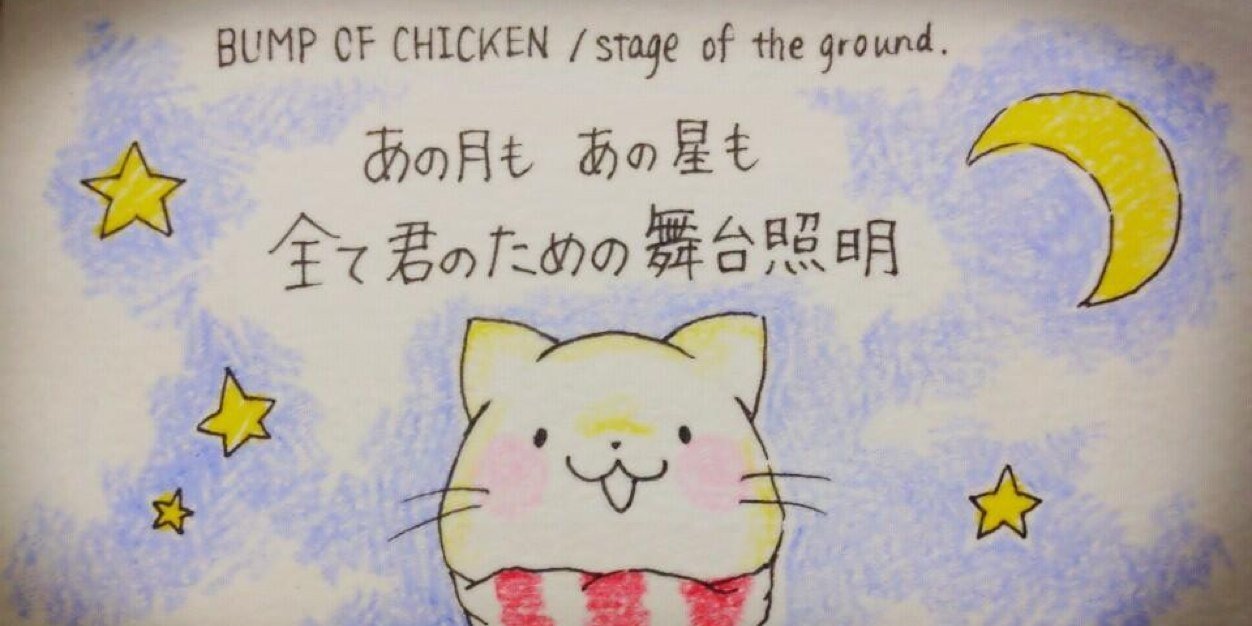 BUMP OF CHICKEN / stage of the ground.
あの月も あの星も
全て君のための舞台照明